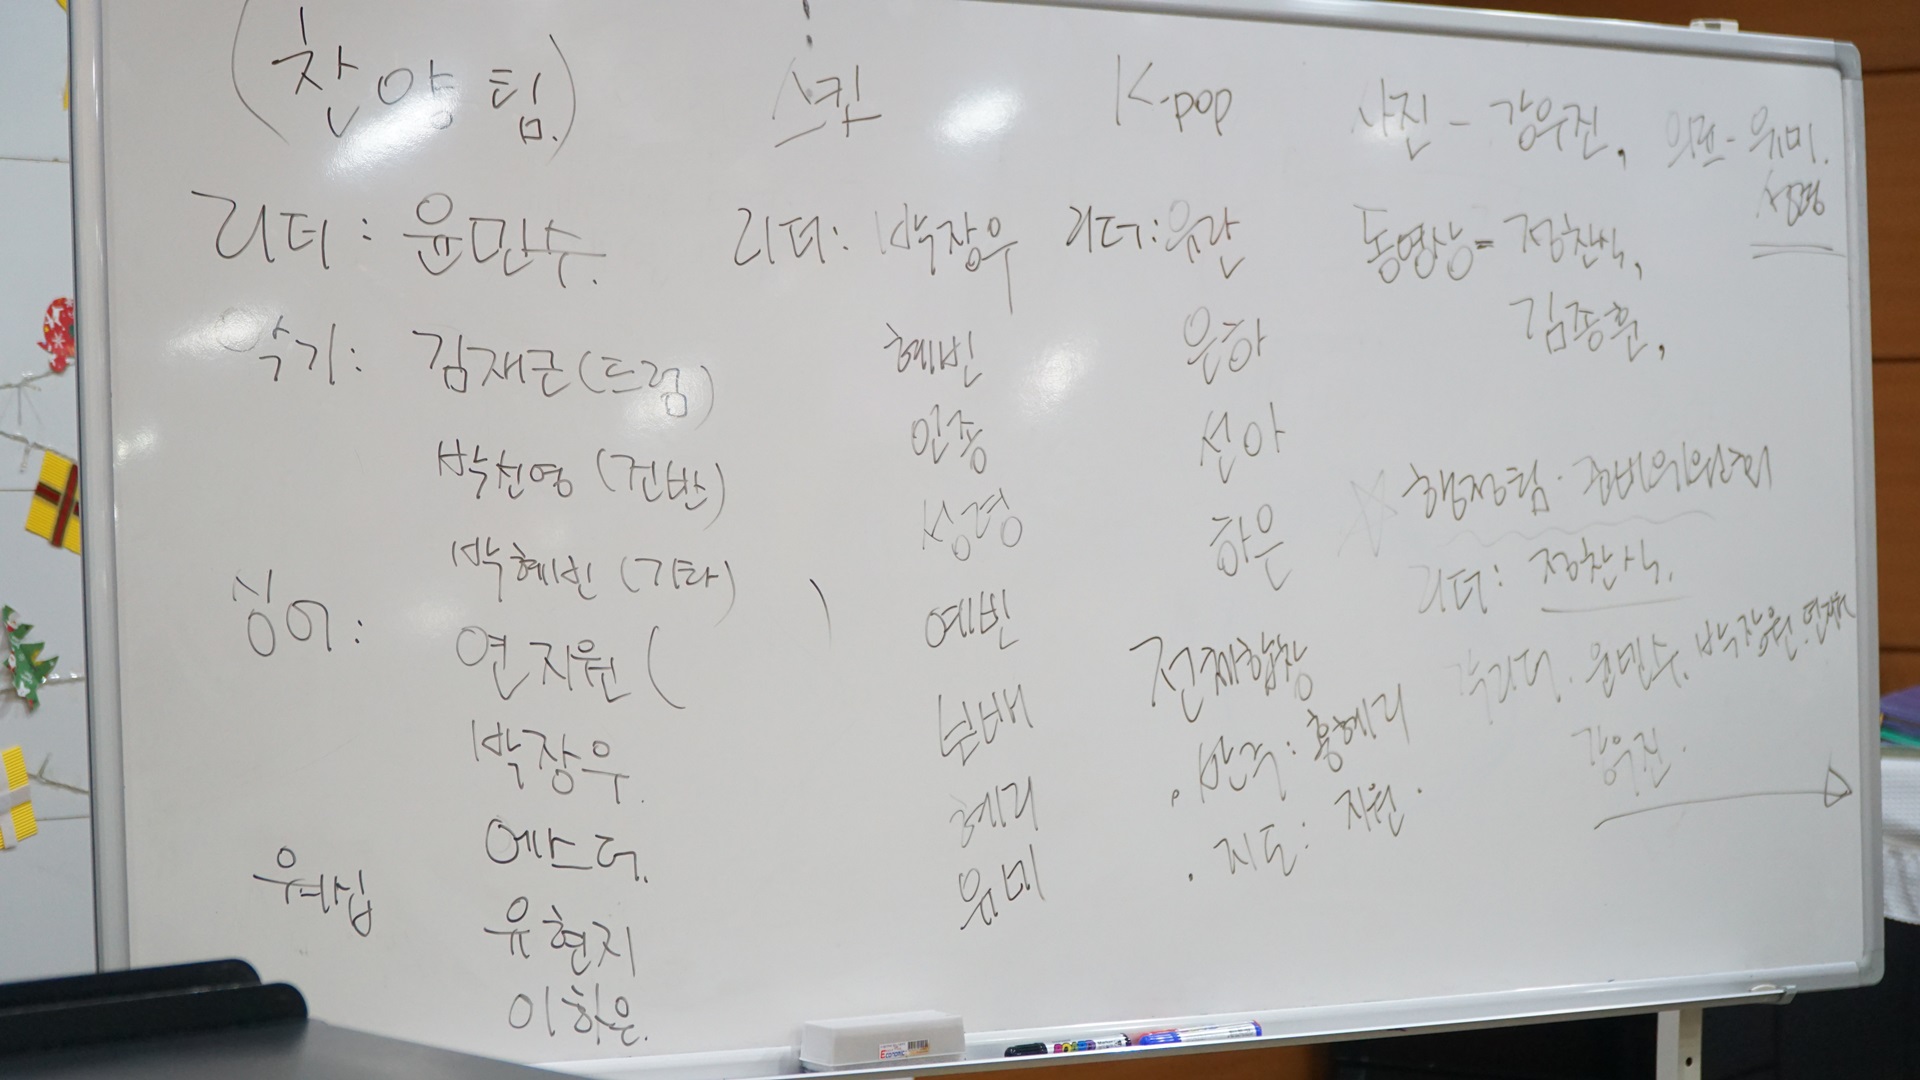 (찬양팀.)
리더: 윤민수.
악기: 김재근(드럼)
박찬영(건반)
박혜빈(기타)
싱어: 연지원(
박장우.
에스더.
워십
유현지
이하은.
스킷
리더: 박장우
혜빈
인종
성경
예빈
혜리
유미
K-pop
리더: 유란
은하
선아
하은
전체합창
· 반주: 홍혜리
· 지도: 지원.
사진 - 강우진,
동영상 - 정찬식,
김종훈,
의료 - 유미.
성경
☆ 행정팀 · 준비위원회
리더: 정찬식.
각리더. 윤민수.
강우진.
Economic